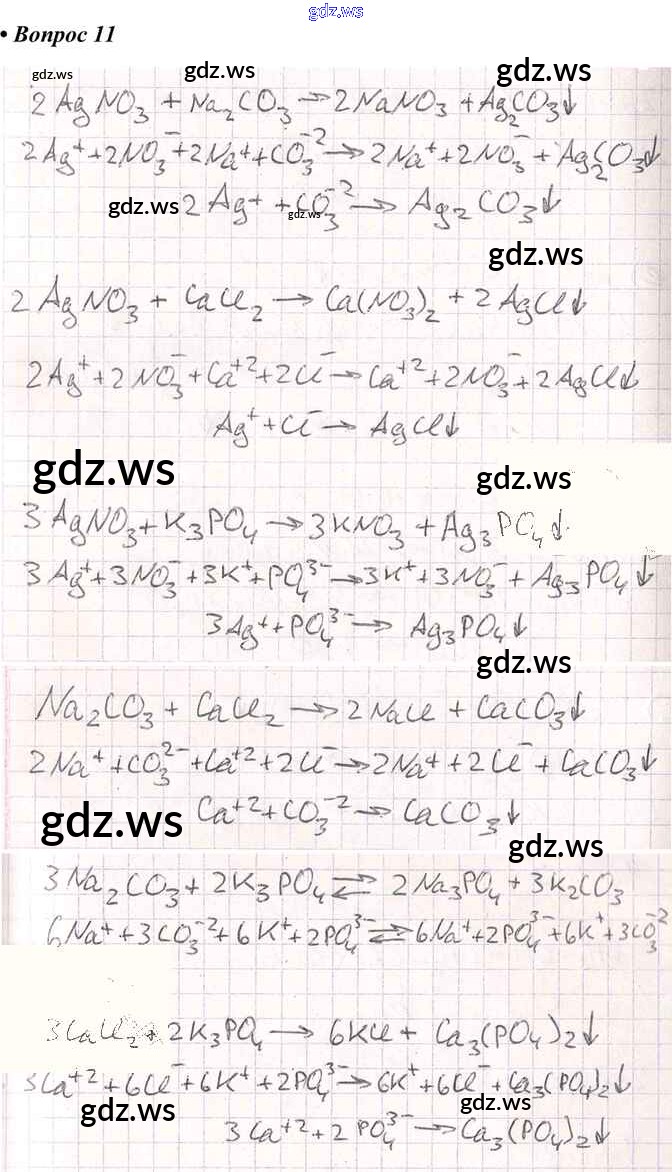 gdz.ws
• Вопрос 11
gdz.ws gdz.ws gdz.ws
2AgNO₃ + Na₂CO₃ → 2NaNO₃ + Ag₂CO₃↓
2Ag⁺ + 2NO₃⁻ + 2Na⁺ + CO₃⁻² → 2Na⁺ + 2NO₃⁻ + Ag₂CO₃↓
gdz.ws 2Ag⁺ + CO₃⁻² → Ag₂CO₃↓
gdz.ws
gdz.ws
2AgNO₃ + CaCl₂ → Ca(NO₃)₂ + 2AgCl↓
2Ag⁺ + 2NO₃⁻ + Ca⁺² + 2Cl⁻ → Ca⁺² + 2NO₃⁻ + 2AgCl↓
Ag⁺ + Cl⁻ → AgCl↓
gdz.ws gdz.ws
3AgNO₃ + K₃PO₄ → 3KNO₃ + Ag₃PO₄↓
3Ag⁺ + 3NO₃⁻ + 3K⁺ + PO₄³⁻ → 3K⁺ + 3NO₃⁻ + Ag₃PO₄↓
3Ag⁺ + PO₄³⁻ → Ag₃PO₄↓
gdz.ws
Na₂CO₃ + CaCl₂ → 2NaCl + CaCO₃↓
2Na⁺ + CO₃²⁻ + Ca⁺² + 2Cl⁻ → 2Na⁺ + 2Cl⁻ + CaCO₃↓
gdz.ws Ca⁺² + CO₃⁻² → CaCO₃↓
gdz.ws
3Na₂CO₃ + 2K₃PO₄ ⇄ 2Na₃PO₄ + 3K₂CO₃
6Na⁺ + 3CO₃⁻² + 6K⁺ + 2PO₄³⁻ ⇄ 6Na⁺ + 2PO₄³⁻ + 6K⁺ + 3CO₃⁻²
3CaCl₂ + 2K₃PO₄ → 6KCl + Ca₃(PO₄)₂↓
3Ca⁺² + 6Cl⁻ + 6K⁺ + 2PO₄³⁻ → 6K⁺ + 6Cl⁻ + Ca₃(PO₄)₂↓
gdz.ws gdz.ws
3Ca⁺² + 2PO₄³⁻ → Ca₃(PO₄)₂↓